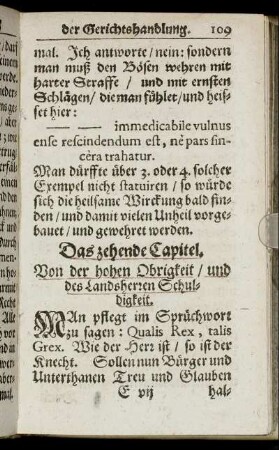 der Gerichtshandlung. 109
mal. Ich antworte / nein: sondern
man muß den Bösen wehren mit
harter Straffe / und mit ernsten
Schlägen / die man fühlet / und heis-
set hier:
— — immedicabile vulnus
ense rescindendum est, nè pars sin-
cèra trahatur.
Man dürffte über 3. oder 4. solcher
Exempel nicht statuiren / so würde
sich die heilsame Wirckung bald fin-
den / und damit vielen Unheil vorge-
bauet / und gewehret werden.
Das zehende Capitel.
Von der hohen Obrigkeit / und
des Landsherren Schul-
digkeit.
MAn pflegt im Sprüchwort
zu sagen: Qualis Rex, talis
Grex. Wie der Herr ist / so ist der
Knecht. Sollen nun Bürger und
Unterthanen Treu und Glauben
E vij hal-